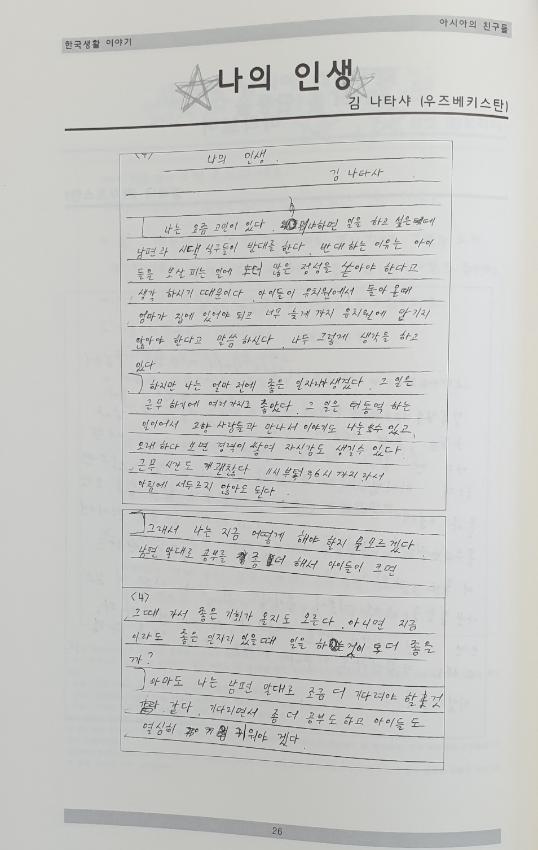 한국생활 이야기
아시아의 친구들
나의 인생
김 나타샤 (우즈베키스탄)
나의 인생.
김 나타샤
나는 요즘 고민이 있다. 왜냐하면 일을 하고 싶은데
남편과 시댁 식구들이 반대를 한다. 반대하는 이유는 아이
들을 보살피는 일에 더 많은 정성을 쏟아야 한다고
생각 하시기 때문이다. 아이들이 유치원에서 돌아 올때
엄마가 집에 있어야 되고 너무 늦게 까지 유치원에 맡기지
않아야 한다고 말씀 하신다. 나두 그렇게 생각을 하고
있다.
하지만 나는 얼마 전에 좋은 일자리가 생겼다. 그 일은
근무 하기에 여러가지로 좋았다. 그 일은 통역 하는
일이어서 고향 사람들과 만나서 이야기도 나눌수 있고,
오래 하다 보면 경력이 쌓여 자신감도 생길수 있다
근무 시간도 괜찮다 11시부터 6시 까지 라서
아침에 서두르지 않아도 된다.
그래서 나는 지금 어떻게 해야 할지 모르겠다.
남편 말대로 공부를 좀 더 해서 아이들이 크면
<4>
그때 가서 좋은 기회가 올지도 모른다. 아니면 지금
이라도 좋은 일자리 있을때 일을 하는것이 더 좋을
까?
아마도 나는 남편 말대로 조금 더 기다려야 할 것
같다. 기다리면서 좀 더 공부도 하고 아이들도
열심히 키워야 겠다.
26